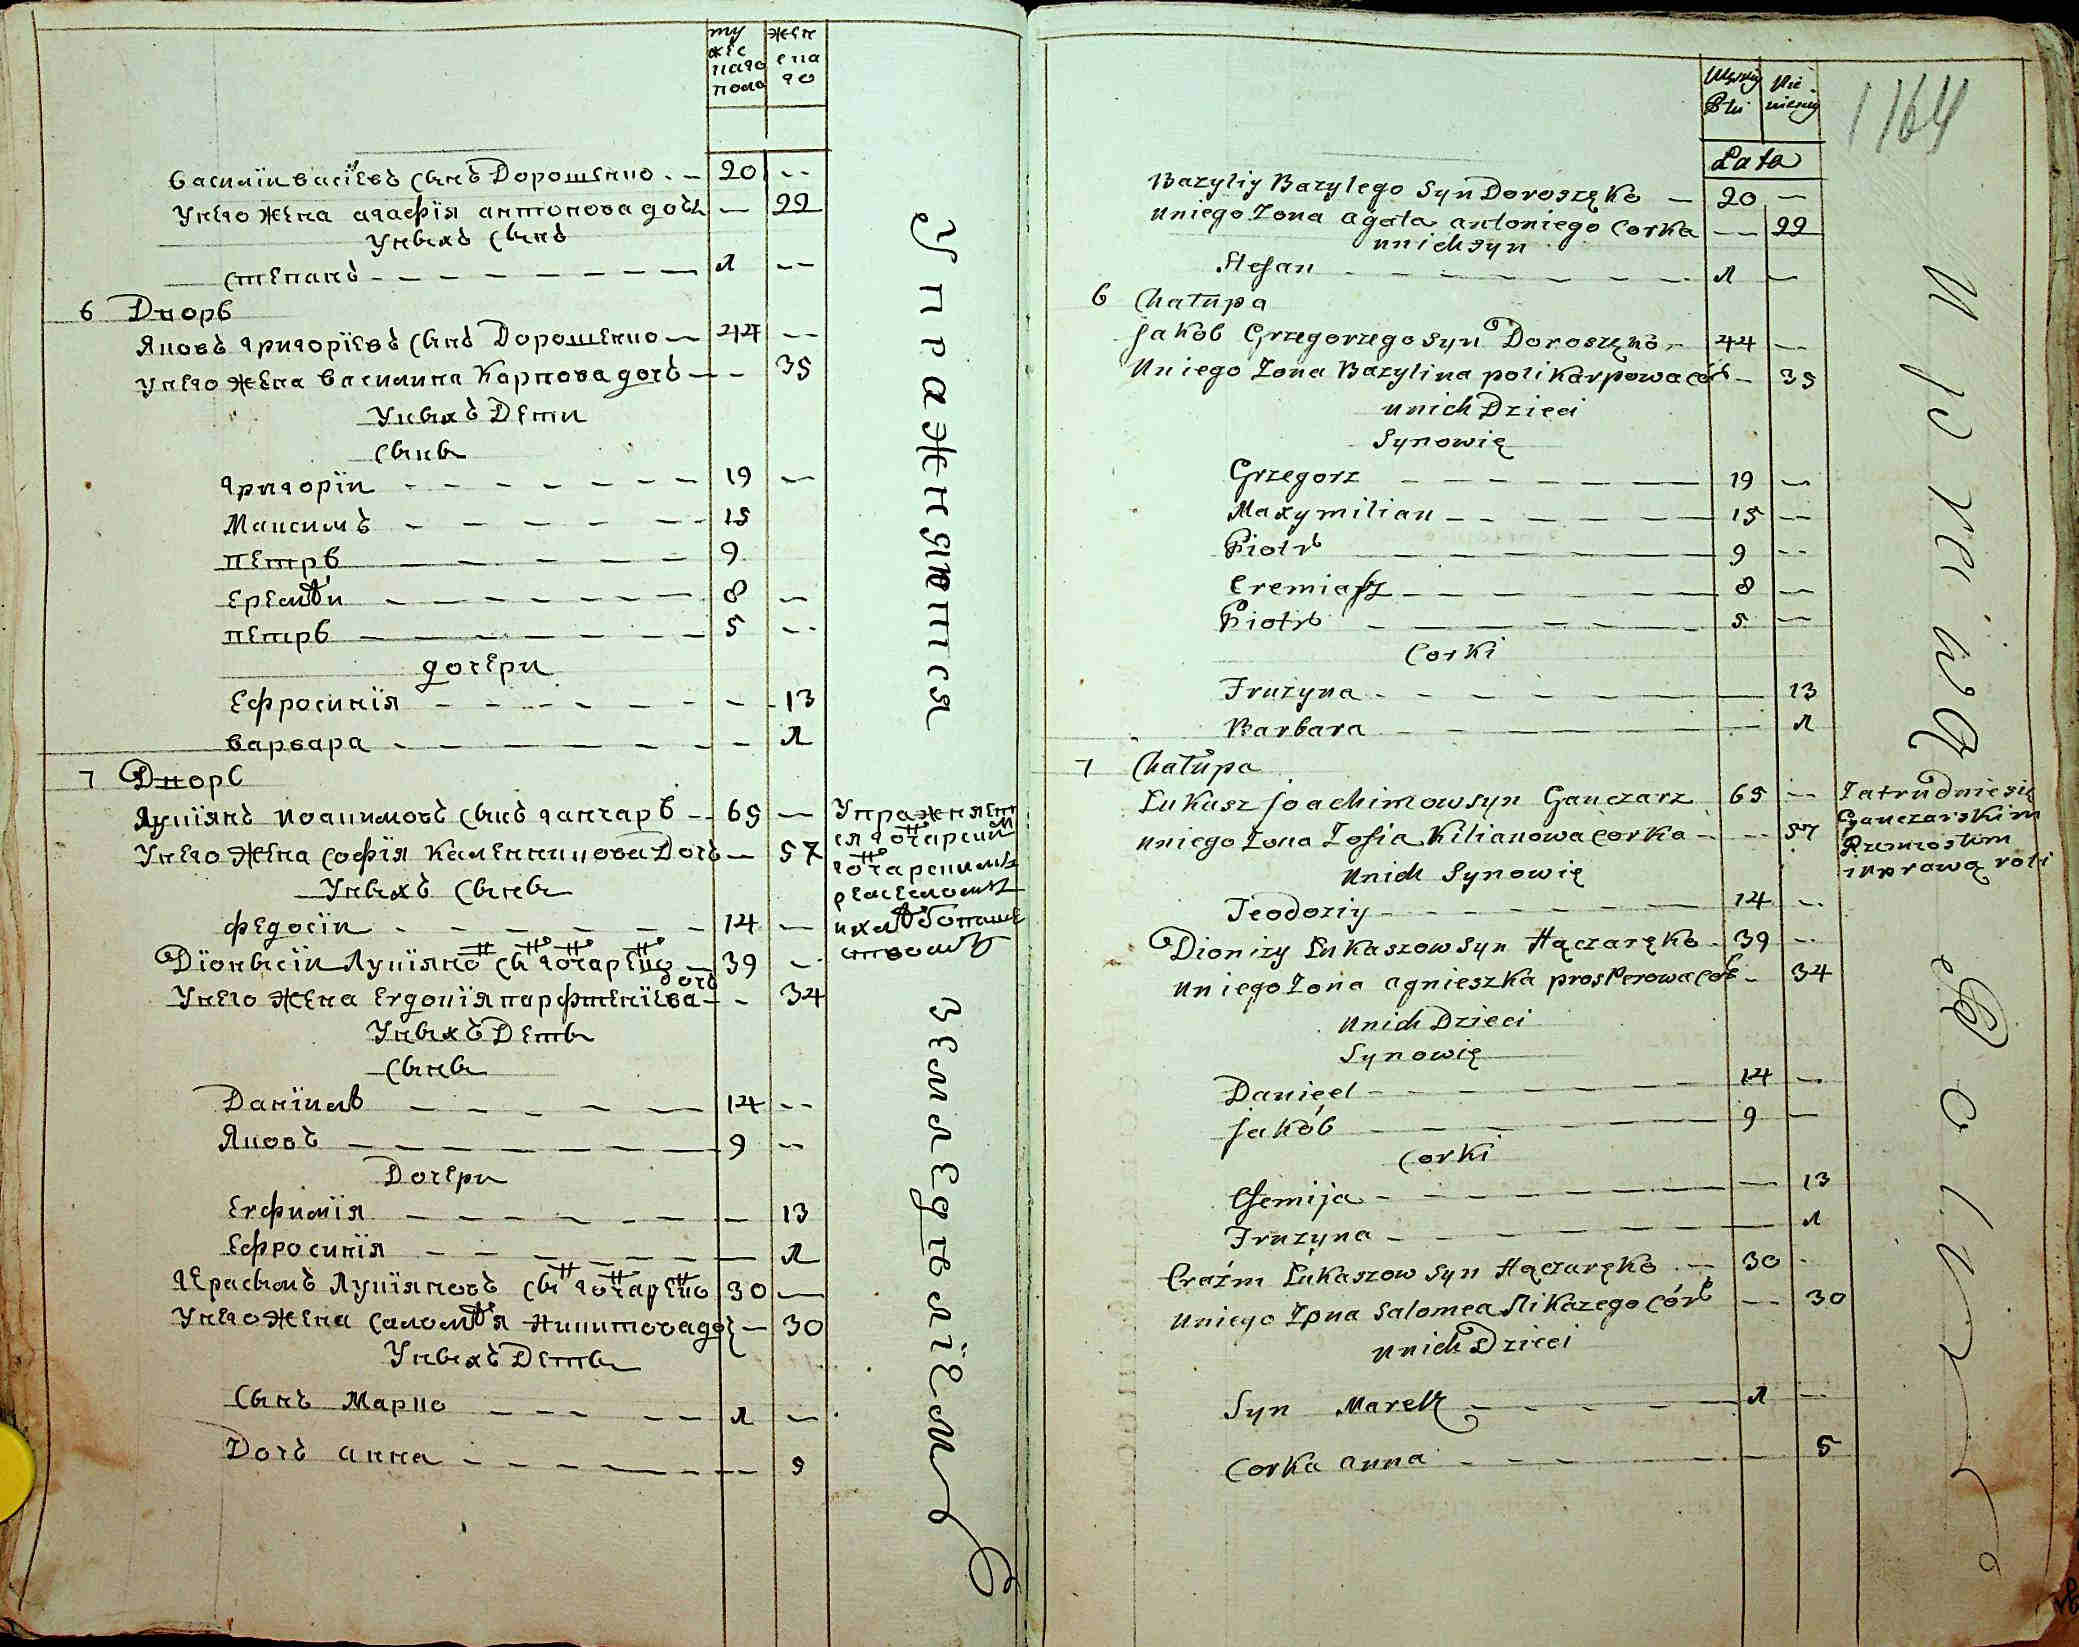 му
жес
каго
пола
жен
ска
го
Василїи Васїевъ сынъ Дорошенко 20 --
У него жена Агафїя Антонова дочь -- 22
У ныхъ сынъ
Степанъ л --
6 Дворъ
Яковъ Григорїевъ сынъ Дорошенко 44 --
У него жена Василина Карпова дочь -- 35
У ныхъ Дети
Сынъ
Григорїи 19 --
Максимъ 15
Петръ 9
Еремѣи 8 --
Петръ 5 --
дочери
Ефросинїя - 13
Варвара - л
7 Дворъ
Лукїянъ Иоакимовъ сынъ Ганчаръ 65 --
У него жена Софїя Калениикова Дочь -- 57
У ныхъ Сыны
Федосїи 14 --
Дїонысїи Лукїяно сы Гочаре͠ко 39 --
У него жена Евдокїя Парфтенїева дочь - 34
У ныхъ Дети
Сыны
Данїилъ 14 --
Яковъ 9 --
Дочери
Евфимїя -- 13
Ефросинїя -- л
Герасымъ Лукїяновъ сы Гочаре͠ко 30 --
У него жена Саломѣя Никитова доч -- 30
У ныхъ Дети
Сынъ Марко л --
Дочъ Анна -- 9
Упражняет
ся гочарским
гочарскимъ
ремесломъ
и хлѣбопаше
ствомъ
Упражняются земледѣлїемъ
1164
Męskiej
Płci
Nie
wieściej
Lata
Bazyliy Bazylego Syn Doroszęko 20 --
u niego Zona Agata Antoniego Corka -- 22
u nich syn
Stefan л --
6 Chałupa
Jakób Grzegorzego syn Doroszęko 44 --
U niego Zona Bazylina polikarpowa cór -- 35
u nich Dzieci
Synowię
Grzegorz 19 --
Maxymilian 15 --
Piotr 9 --
Eremiasz 8 --
Piotr 5 --
Corki
Fruzyna -- 13
Barbara -- л
7 Chałupa
Łukasz Joachimow syn Ganczarz 65 --
u niego Zona Zofia Kilianowa corka -- 57
U nich Synowię
Teodoziy 14 --
Dionizy Łukaszow Syn Hączaręko 39 --
U niego Zona Agnieszka prosperowa cor -- 34
U nich Dzieci
Synowię
Danieel 14 --
Jakób 9 --
Corki
Efemija -- 13
Fruzyna -- л
Erazm Łukaszow Syn Hączaręko 30 -
U niego Zona Salomea Nikazego Cór -- 30
U nich Dzieci
Syn Marek л --
Corka Anna -- 5
Zatrudnie się
Ganczarskim
Rzemiosłem
i uprawą roli
Uprawią Rolę